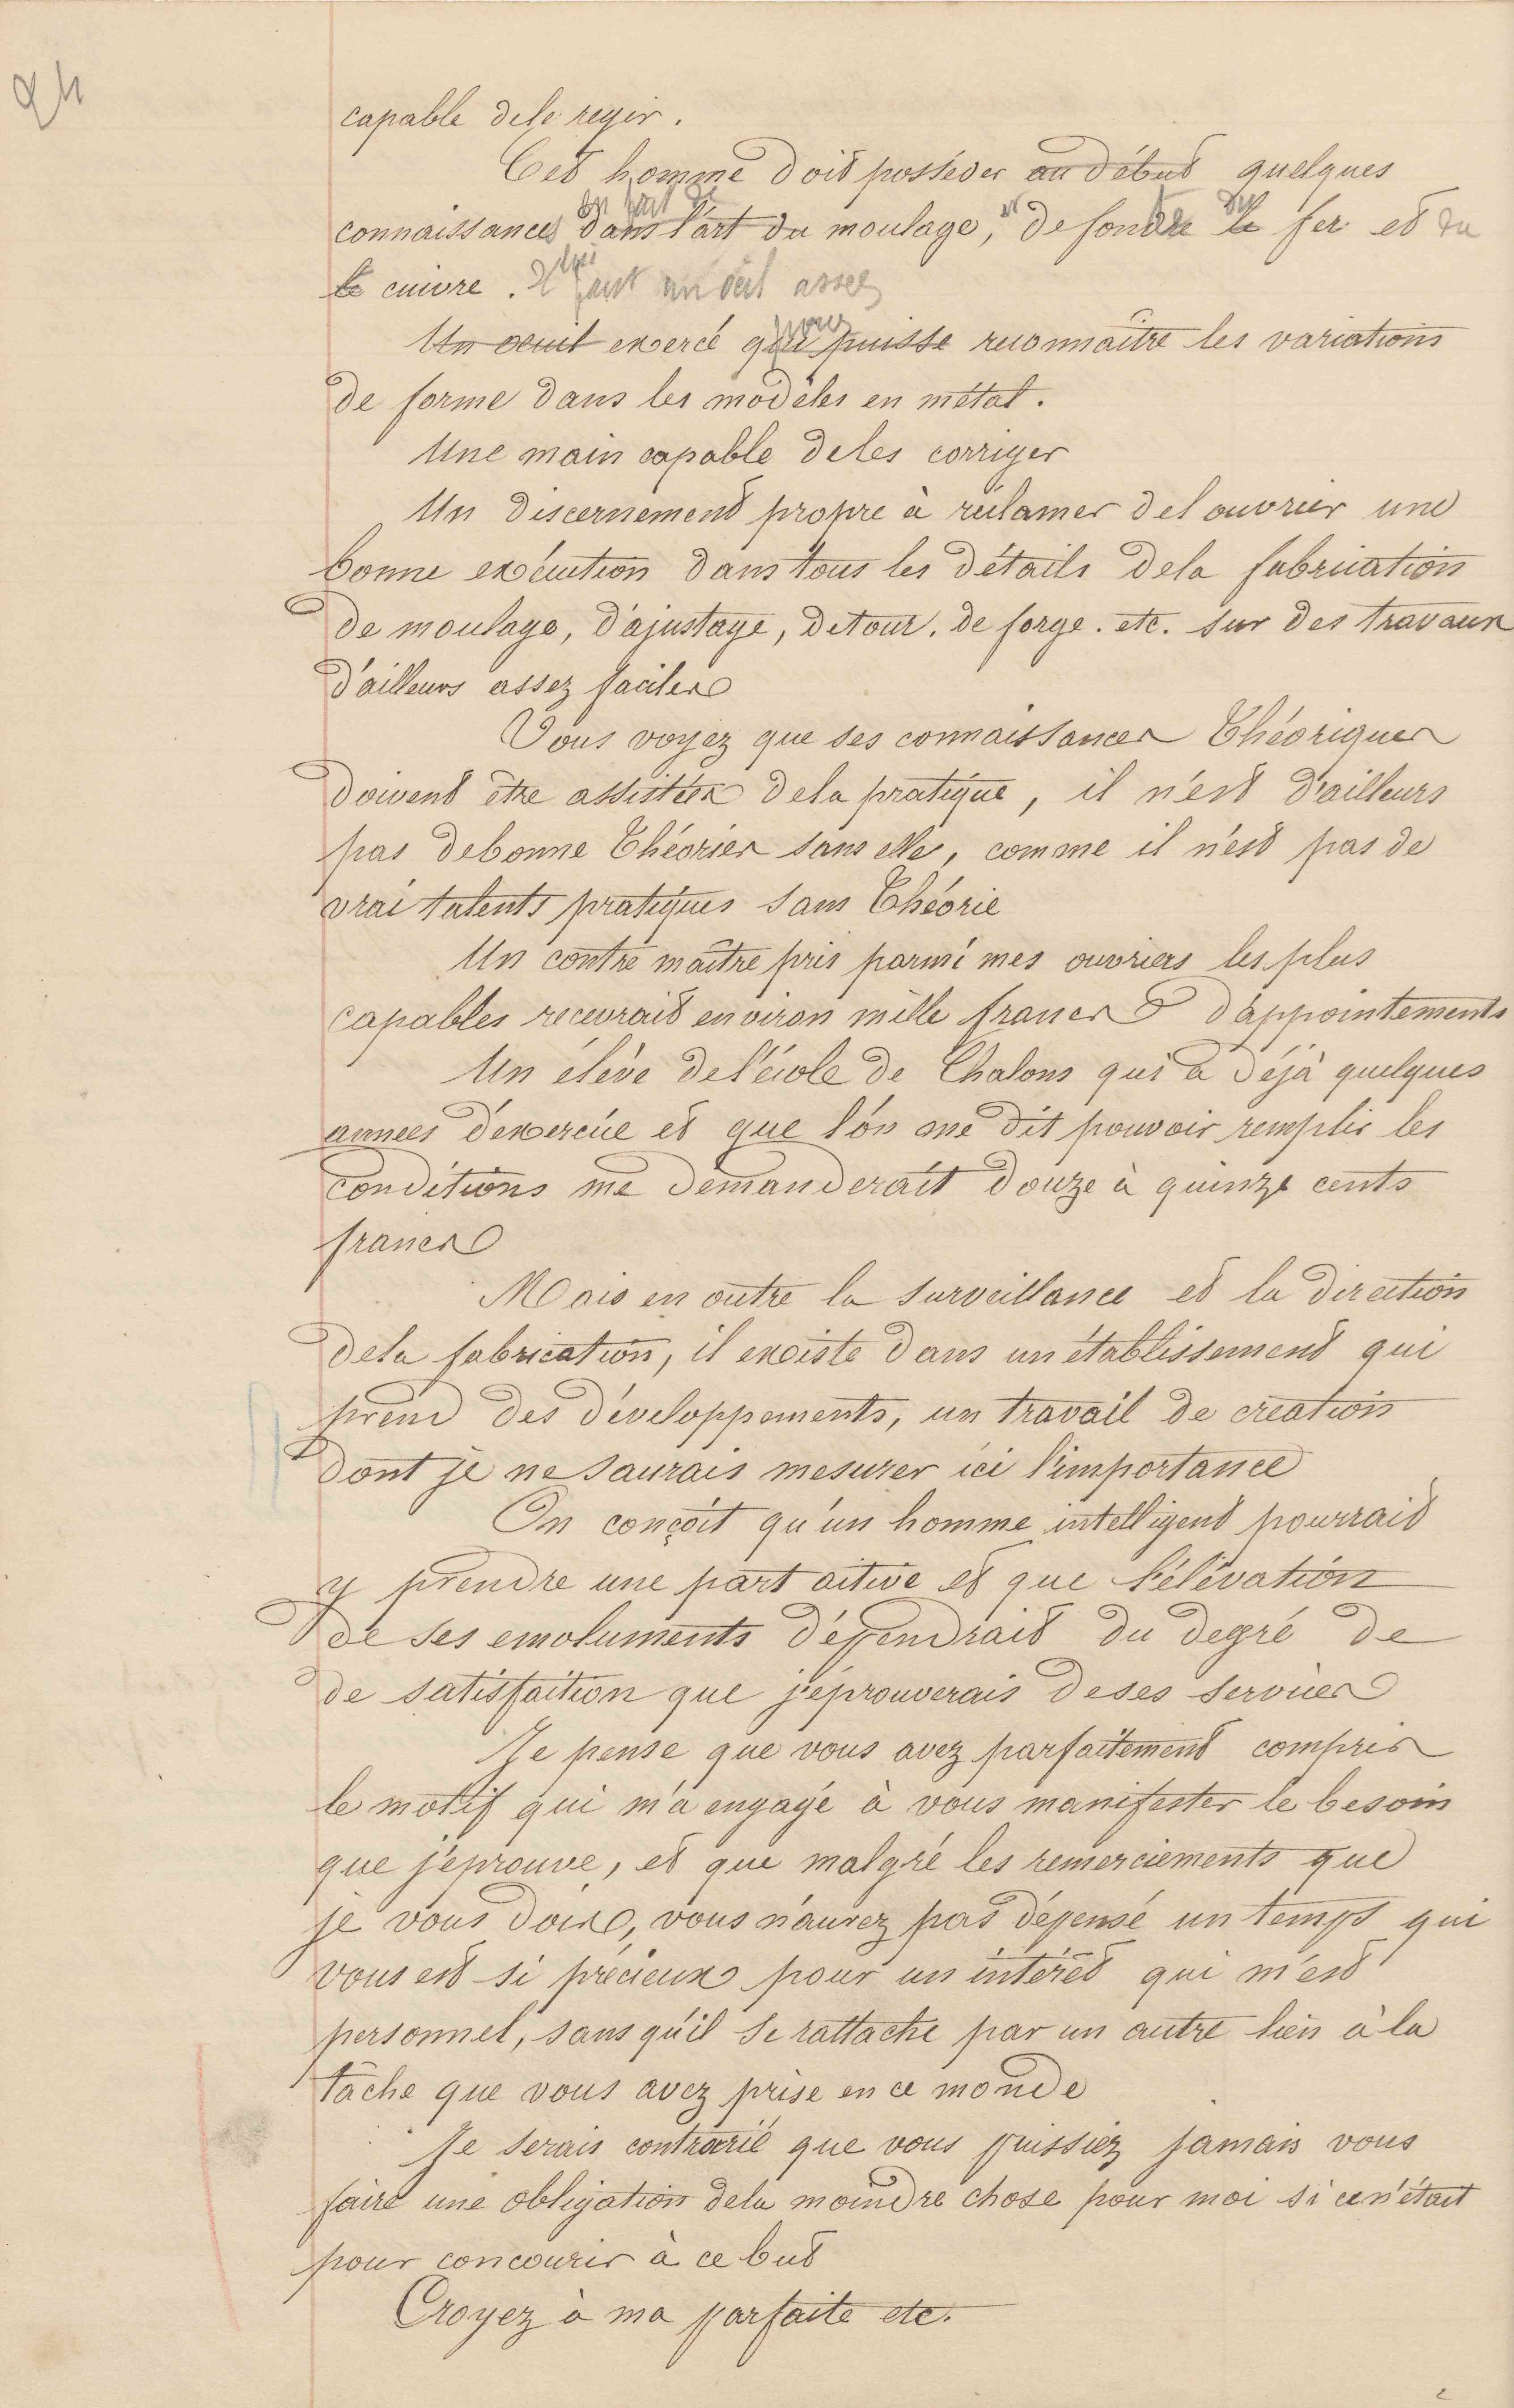 24
capable de le regir.
Cet homme doit posséder au début quelques
en fait de
connaissances dans l'art du moulage, et de fondre le du fer et du
le cuivre. Il lui faut un œil assez
Un œuil exercé qui puisse pour reconnaître les variations
de forme dans les modèles en métal.
Une main capable de les corriger
Un discernement propre à réclamer de l ouvrier une
bonne exécution dans tous les détails de la fabrication
de moulage, d'ajustage, de tour. de forge. etc. sur des travaux
d'ailleurs assez faciles
Vous voyez que ses connaissances Théoriques
doivent être assistées de la pratique, il n'est d'ailleurs
pas de bonne Théories sans elle, comme il n'est pas de
vrai talents pratiques sans Théorie
Un contre maître pris parmi mes ouvriers les plus
capables recevrait environ mille francs d'appointements
Un élève de l'école de Chalons qui a déjà quelques
annees d'exercice et que l'on me dit pouvoir remplir les
conditions me demanderait douze à quinze cents
francs
Mais en outre la surveillance et la direction
de la fabrication, il existe dans un établissement qui
prend des développements, un travail de création
dont je ne saurais mesurer ici l'importance
On conçoit qu'un homme intelligent pourrait
y prendre une part active et que l'élévation
de ses emoluments dépendrait du degré de
de satisfaction que j'éprouverais de ses services
Je pense que vous avez parfaitement compris
le motif qui m'a engagé à vous manifester le besoin
que j'éprouve, et que malgré les remerciements que
je vous dois, vous n'aurez pas dépensé un temps qui
vous est si précieux pour un intérêt qui m'est
personnel, sans qu'il se rattache par un autre lien à la
tâche que vous avez prise en ce monde
Je serais contrarié que vous puissiez jamais vous
faire une obligation de la moindre chose pour moi si ce n'était
pour concourir à ce but
Croyez à ma parfaite etc.